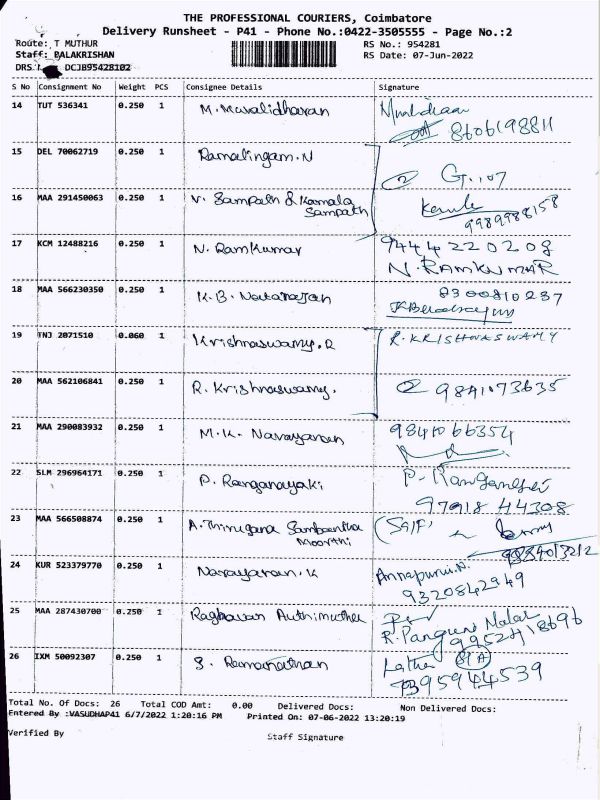 THE PROFESSIONAL COURIERS, Coimbatore
Delivery Runsheet - P41 - Phone No.:0422-3505555 - Page No.:2
Route: T MUTHUR
RS No.: 954281
Staff: BALAKRISHAN
RS Date: 07-Jun-2022
DRS DCJ895428102
S No Consignment No Weight PCS Consignee Details Signature
14 TUT 536341 0.250 1 M. Muralidharan
8606198811
15 DEL 70062719 0.250 1 Ramalingam. N
② G.107
16 MAA 291450063 0.250 1 V. Sampath & Kamala
Sampath
9989988158
17 KCM 12488216 0.250 1 N. Ramkumar 9444220208
N. RAMKUMAR
18 MAA 566230350 0.250 1 K. B. Natarajan 8300810237
19 TNJ 2071510 0.060 1 Krishnaswamy. R R. KRISHNASWAMY
20 MAA 562106841 0.250 1 R. Krishnaswamy. ② 9841073635
21 MAA 290083932 0.250 1 M. K. Narayanan 9841066354
22 SLM 296964171 0.250 1 P. Ranganayaki
97918 44308
23 MAA 566508874 0.250 1 A. Thirugana Sambantha
Moorthi
24 KUR 523379770 0.250 1 Narayanan. K Annapurni. N.
9320842949
25 MAA 287430700 0.250 1 Raghavan Authimuthu
R. Panguni Malar
9952418696
26 IXM 50092307 0.250 1 S. Ramanathan Latha
95944539
Total No. Of Docs: 26 Total COD Amt: 0.00 Delivered Docs: Non Delivered Docs:
Entered By :VASUDHAP41 6/7/2022 1:20:16 PM Printed On: 07-06-2022 13:20:19
Verified By
Staff Signature